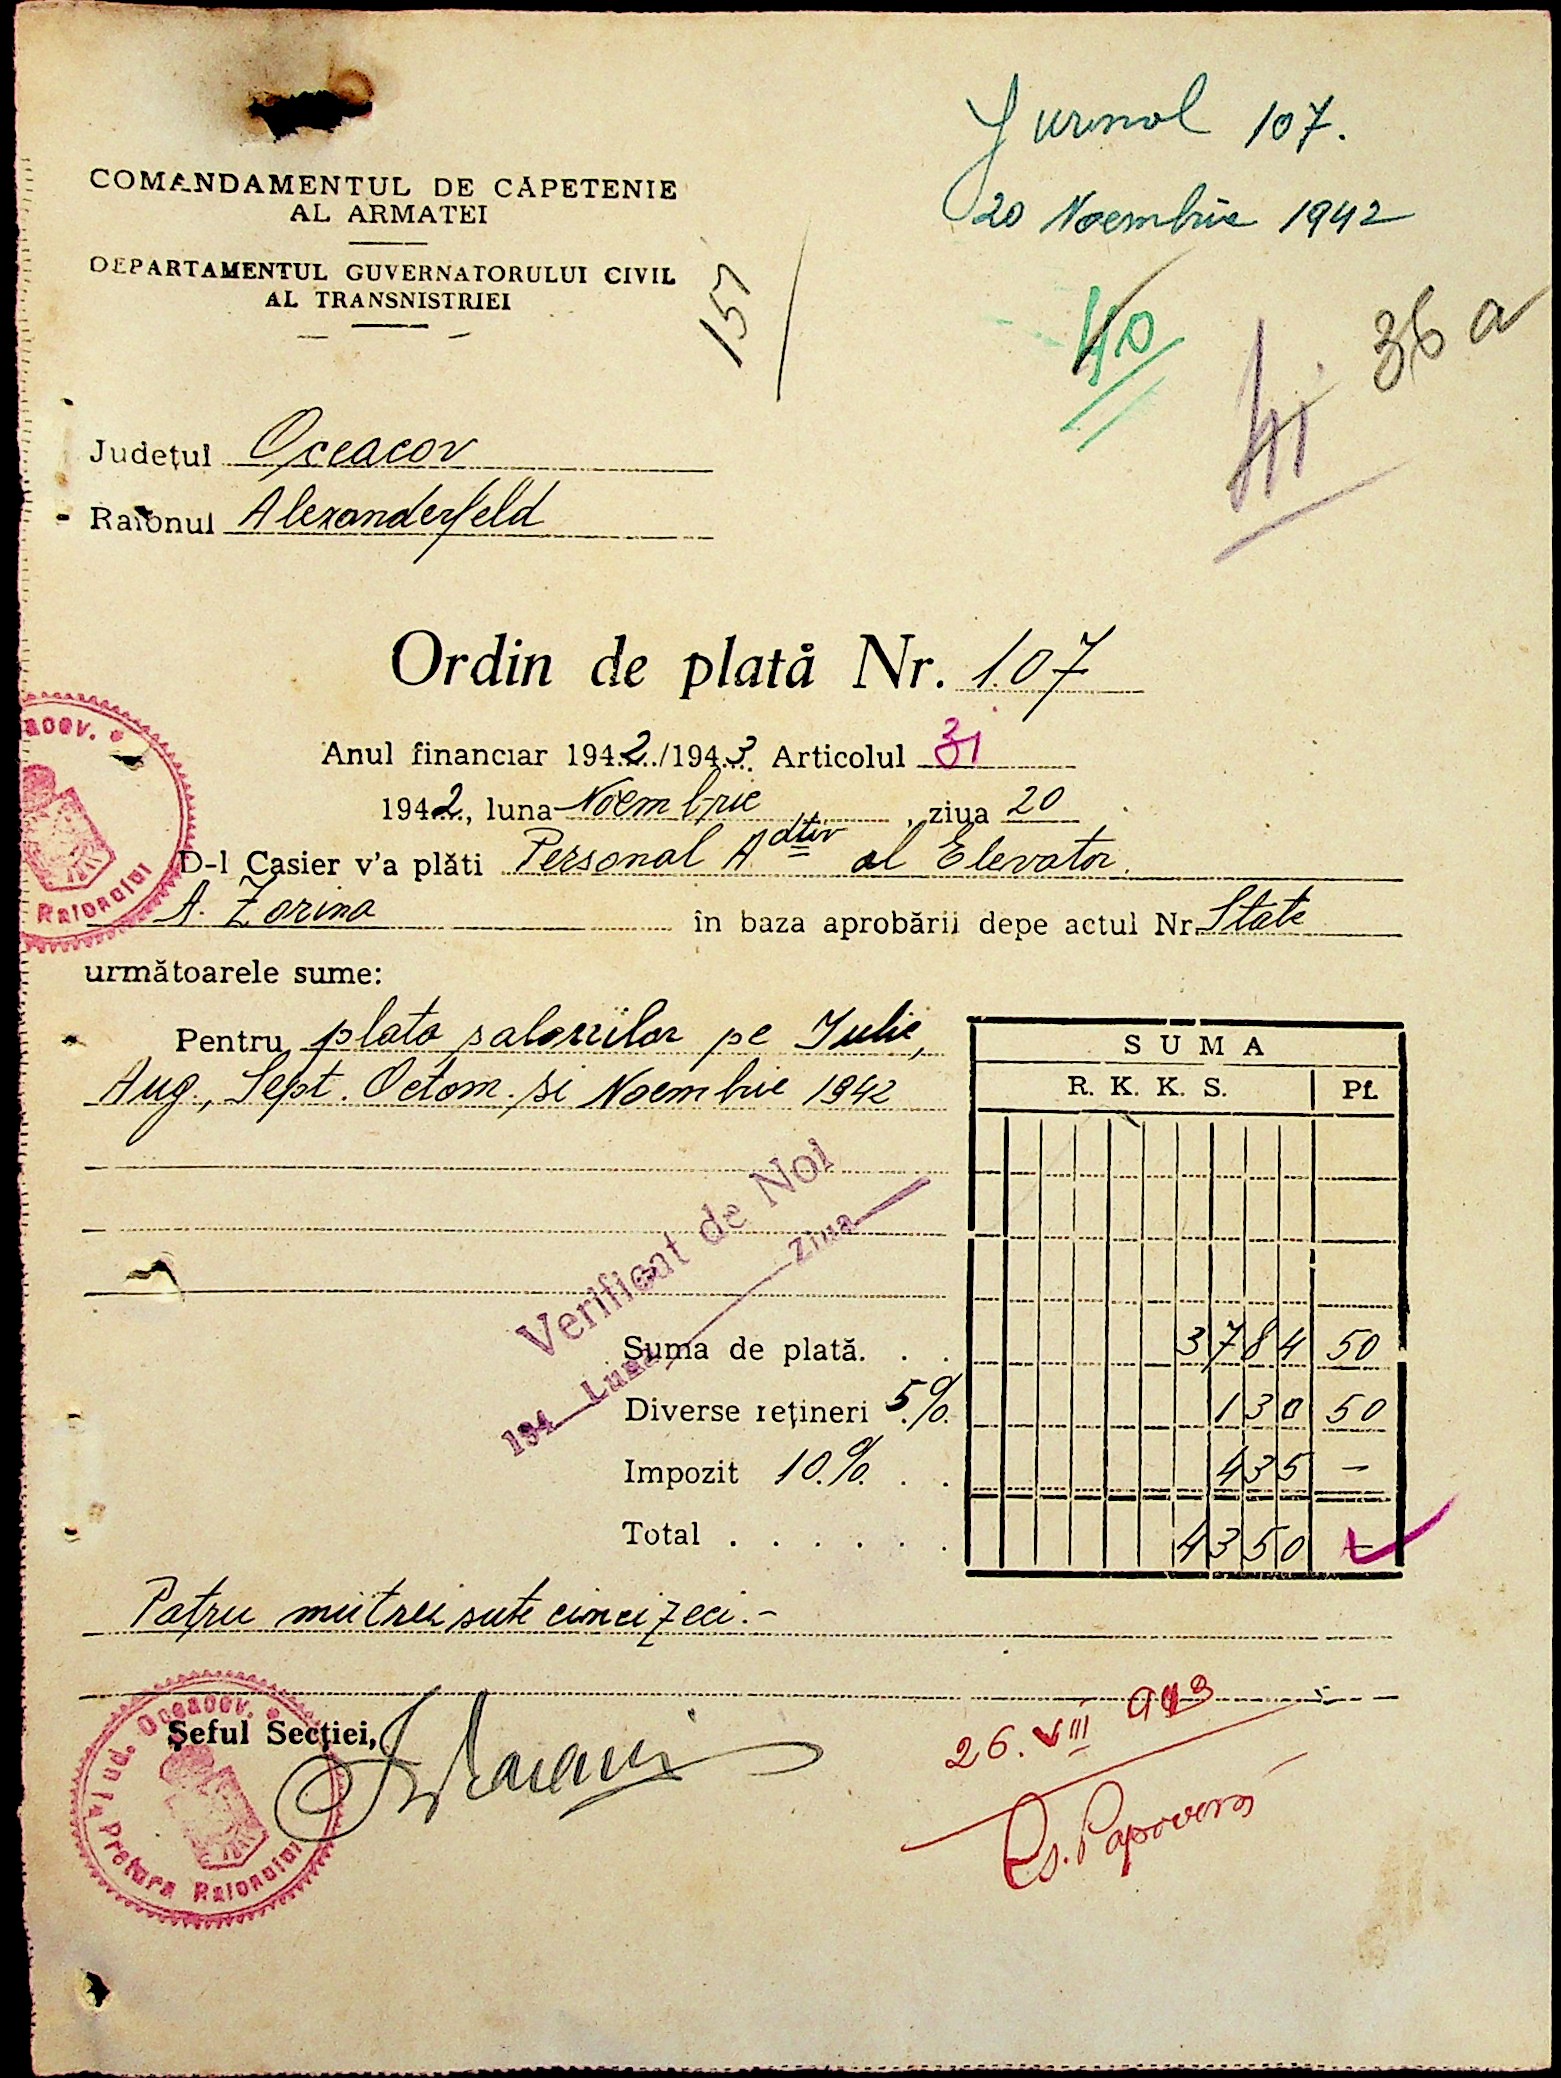 Jurnal 107.
20 Noembrie 1942
COMANDAMENTUL DE CĂPETENIE
AL ARMATEI
DEPARTAMENTUL GUVERNATORULUI CIVIL
AL TRANSNISTRIEI
151
40
41
36 a
Județul Oceacov
Raionul Alexanderfeld
Ordin de plată Nr. 107
Anul financiar 1942/1943 Articolul 31
1942, luna Noembrie, ziua 20
D-l Casier v'a plăti Personal Adtiv al Elevator.
A. Zorina în baza aprobării depe actul Nr. State
următoarele sume:
Pentru plata salariilor pe Iulie,
Aug., Sept. Octom. și Noembrie 1942
SUMA
R. K. K. S. Pf.
Verificat de Noi
194 Luna Ziua
Suma de plată. . . 3784 50
Diverse rețineri 5% 130 50
Impozit 10% . . 435 —
Total . . . . . . 4350 —
Patru mii trei sute cinci zeci.-
Șeful Secției,
Jud. Oceacov.
Pretura Raionului
26. VIII 943